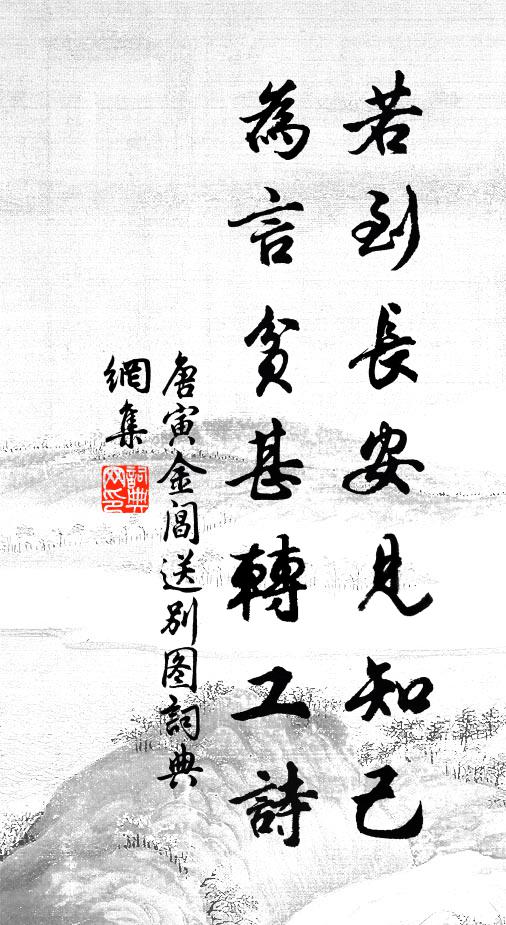 若到長安見知己
為言貧甚轉工詩
唐寅金閶送別图詞典
網集
詞典网印